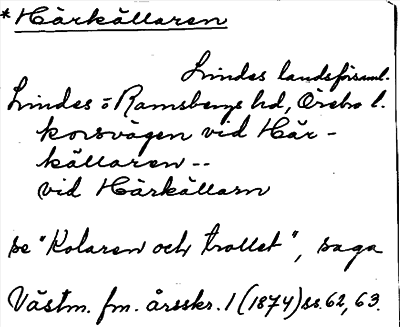 *Härkällaren
Lindes landsförsaml.
Lindes o Ramsbergs hd, Örebro l.
korsvägen vid Här-
källaren --
vid Härkällarn
se "Kolaren och trollet", saga
Västm. fm. årsskr. 1 (1874) ss. 62, 63.